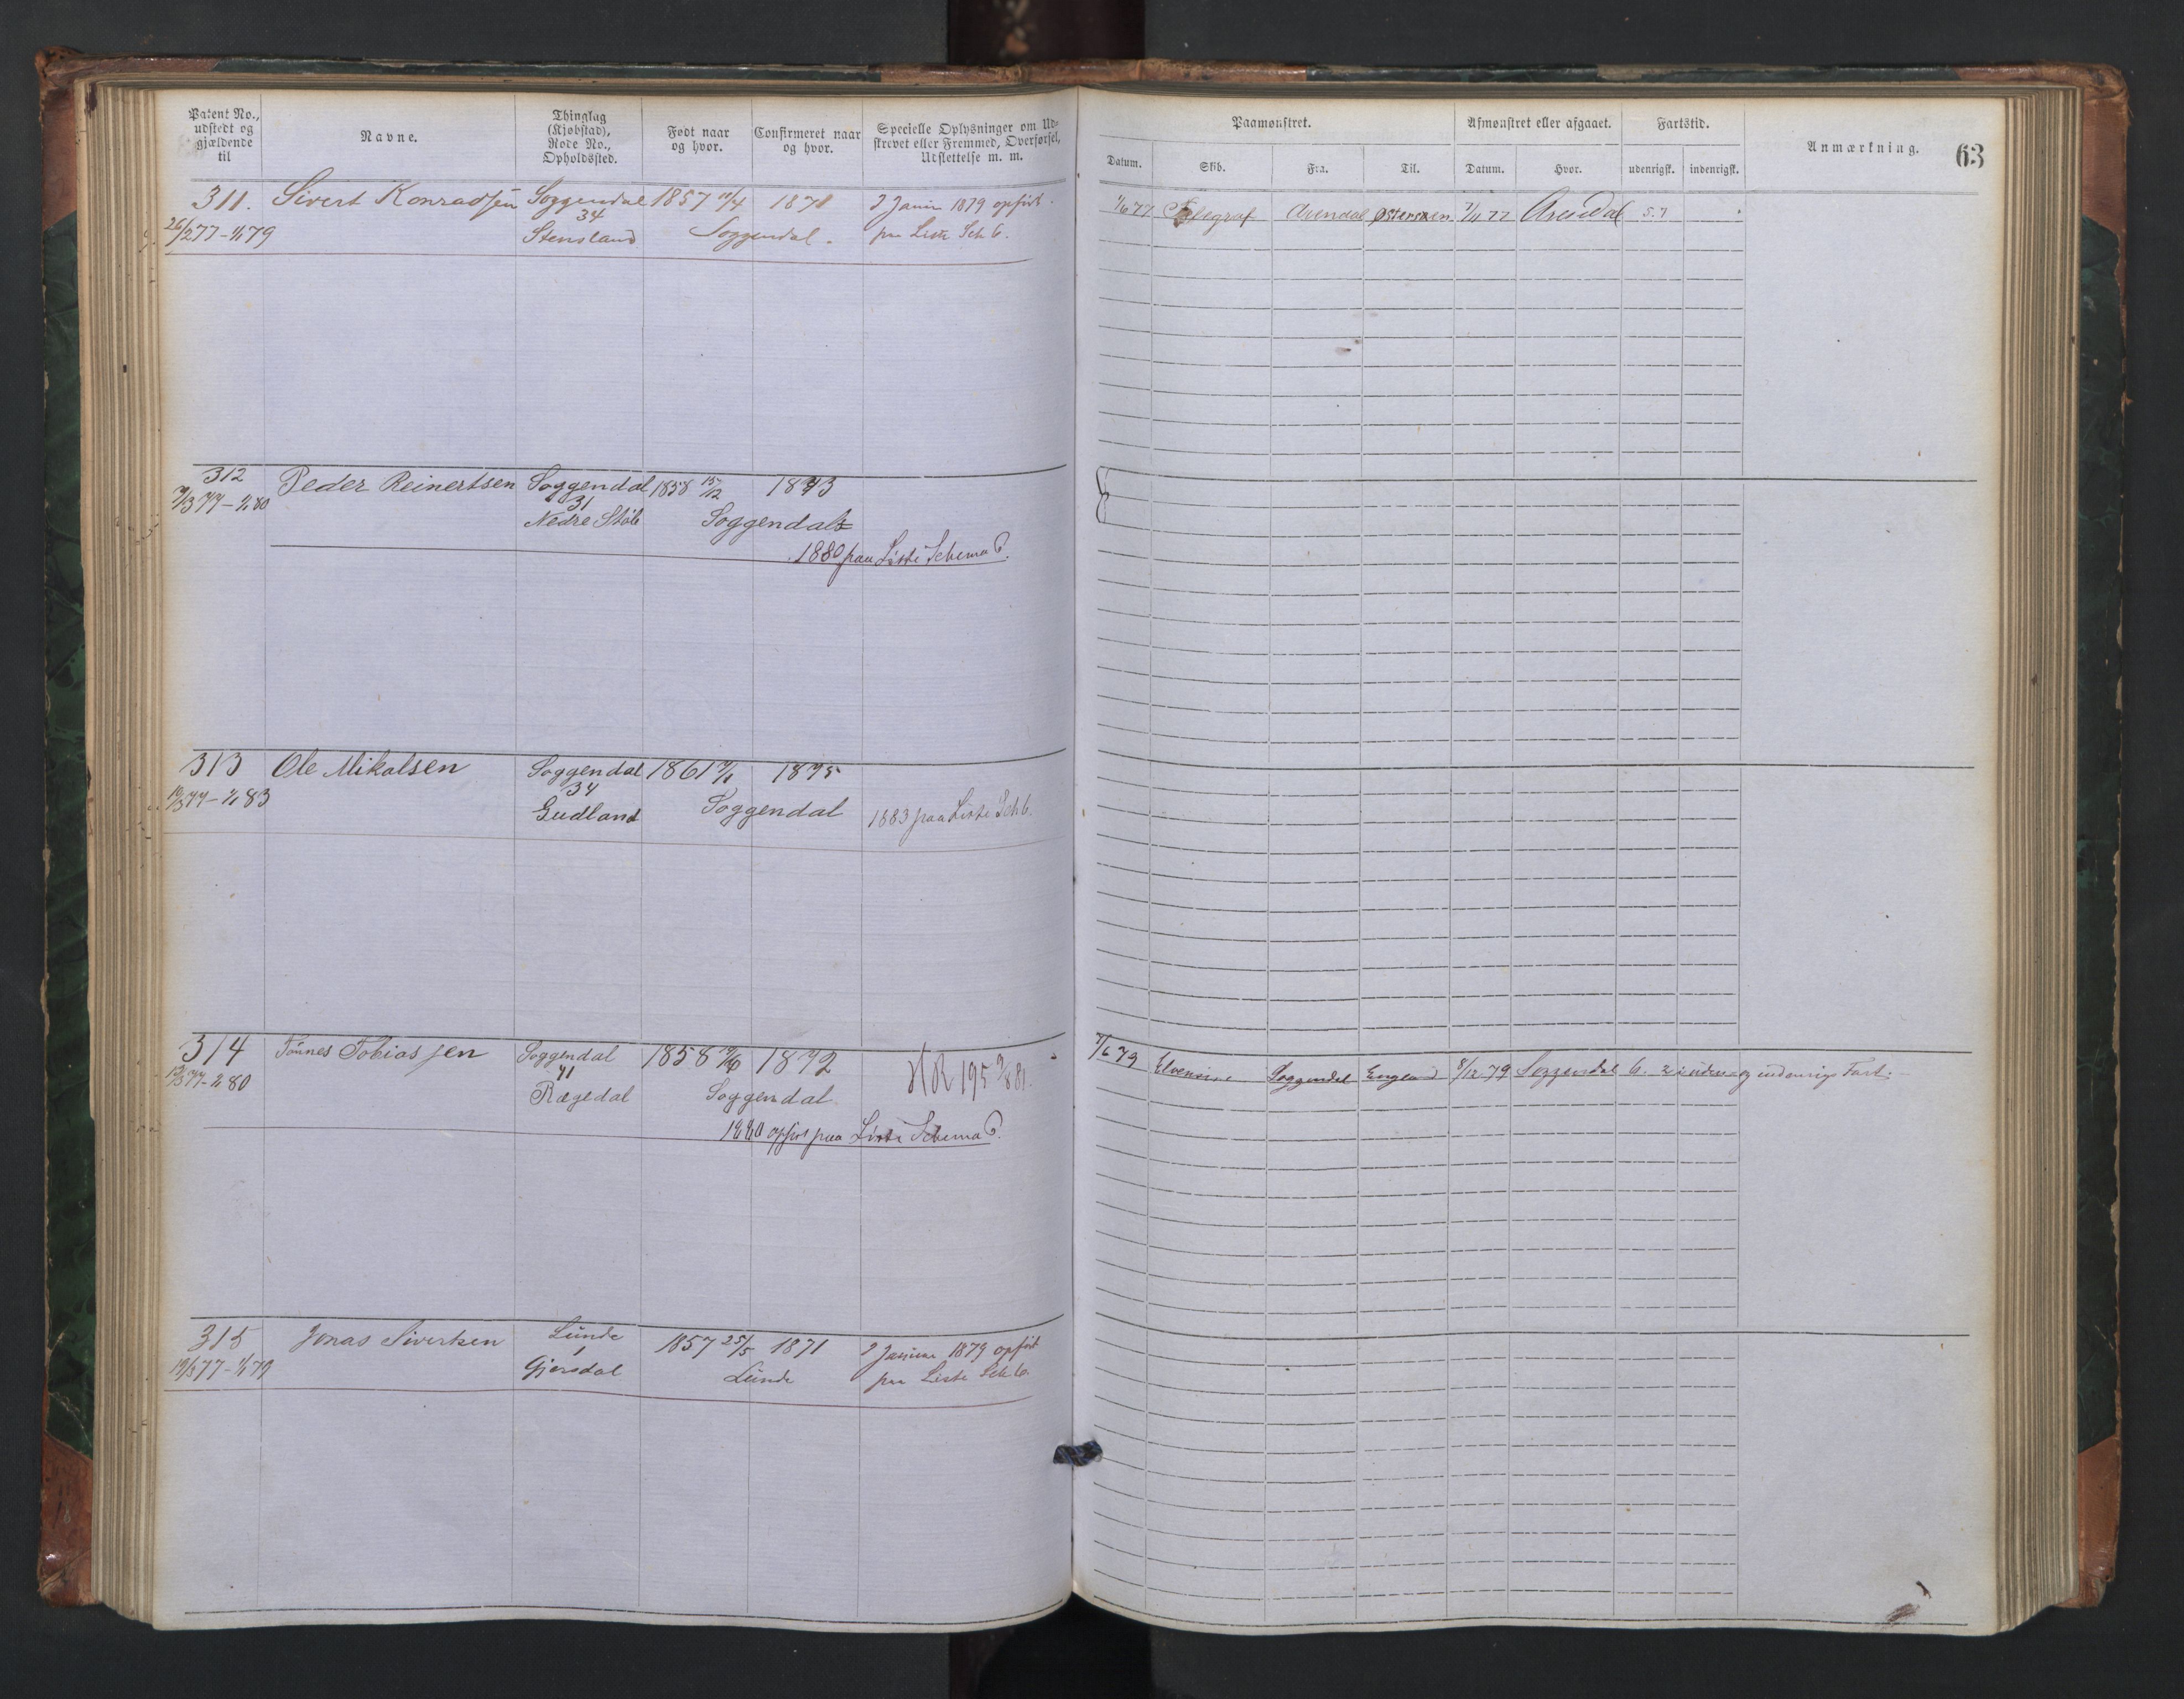 Patent No., udstedt og gjældende til
Navne.
Thinglag (Kjøbstad), Rode No., Opholdssted.
Født naar og hvor.
Confirmeret naar og hvor.
Specielle Oplysninger om Udskrevet eller Fremmed, Overførsel, Udslettelse m. m.
Paamønstret.
Afmønstret eller afgaaet.
Fartstid.
Anmærkning.
63
Datum.
Skib.
Fra.
Til.
Datum.
Hvor.
udenrigsk.
indenrigsk.
311. Sivert Konradsen Soggendal 1857 1871 2 Januar 1879 opført
34
26/2 77 - 1/1 79 Stensland Soggendal. paa Liste Sch 6.
Arendal Østersøen 7/11 77 Arendal 5.7
312 Peder Reinertsen Soggendal 1858 15/12 1873
31
Nedre Støle Soggendal
1880 paa Liste Schema 6.
313 Ole Mikalsen Soggendal 1861 1875
34
Gudland Soggendal 1883 paa Liste Sch 6.
314 Tønnes Tobiassen Soggendal 1858 1872
41
Rægedal Soggendal HR 195
1880 opført paa Liste Schema 6.
7/6 79 Soggendal England 8/12 79 Soggendal 6. 2 inden- og udenrigs Fart.
315 Jonas Sivertsen Lunde 1857 25/5 1871 2 Januar 1879 opført
1
19/3 77 - 1/1 79 Gjersdal Lunde paa Liste Sch 6.